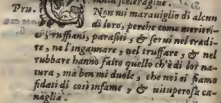 sceleragine
Pru. O Non mi marauiglio di alcun
di loro, perche come meritri-
ci, ruffiani, parasiti, & serui nel tradi-
re, ne l'ingannare, nel truffare, & nel
rubbare hanno fatto quello ch'è di lor na-
tura, ma ben mi duole, che noi ci siamo
fidati di così infame, & uituperosa ca-
naglia.